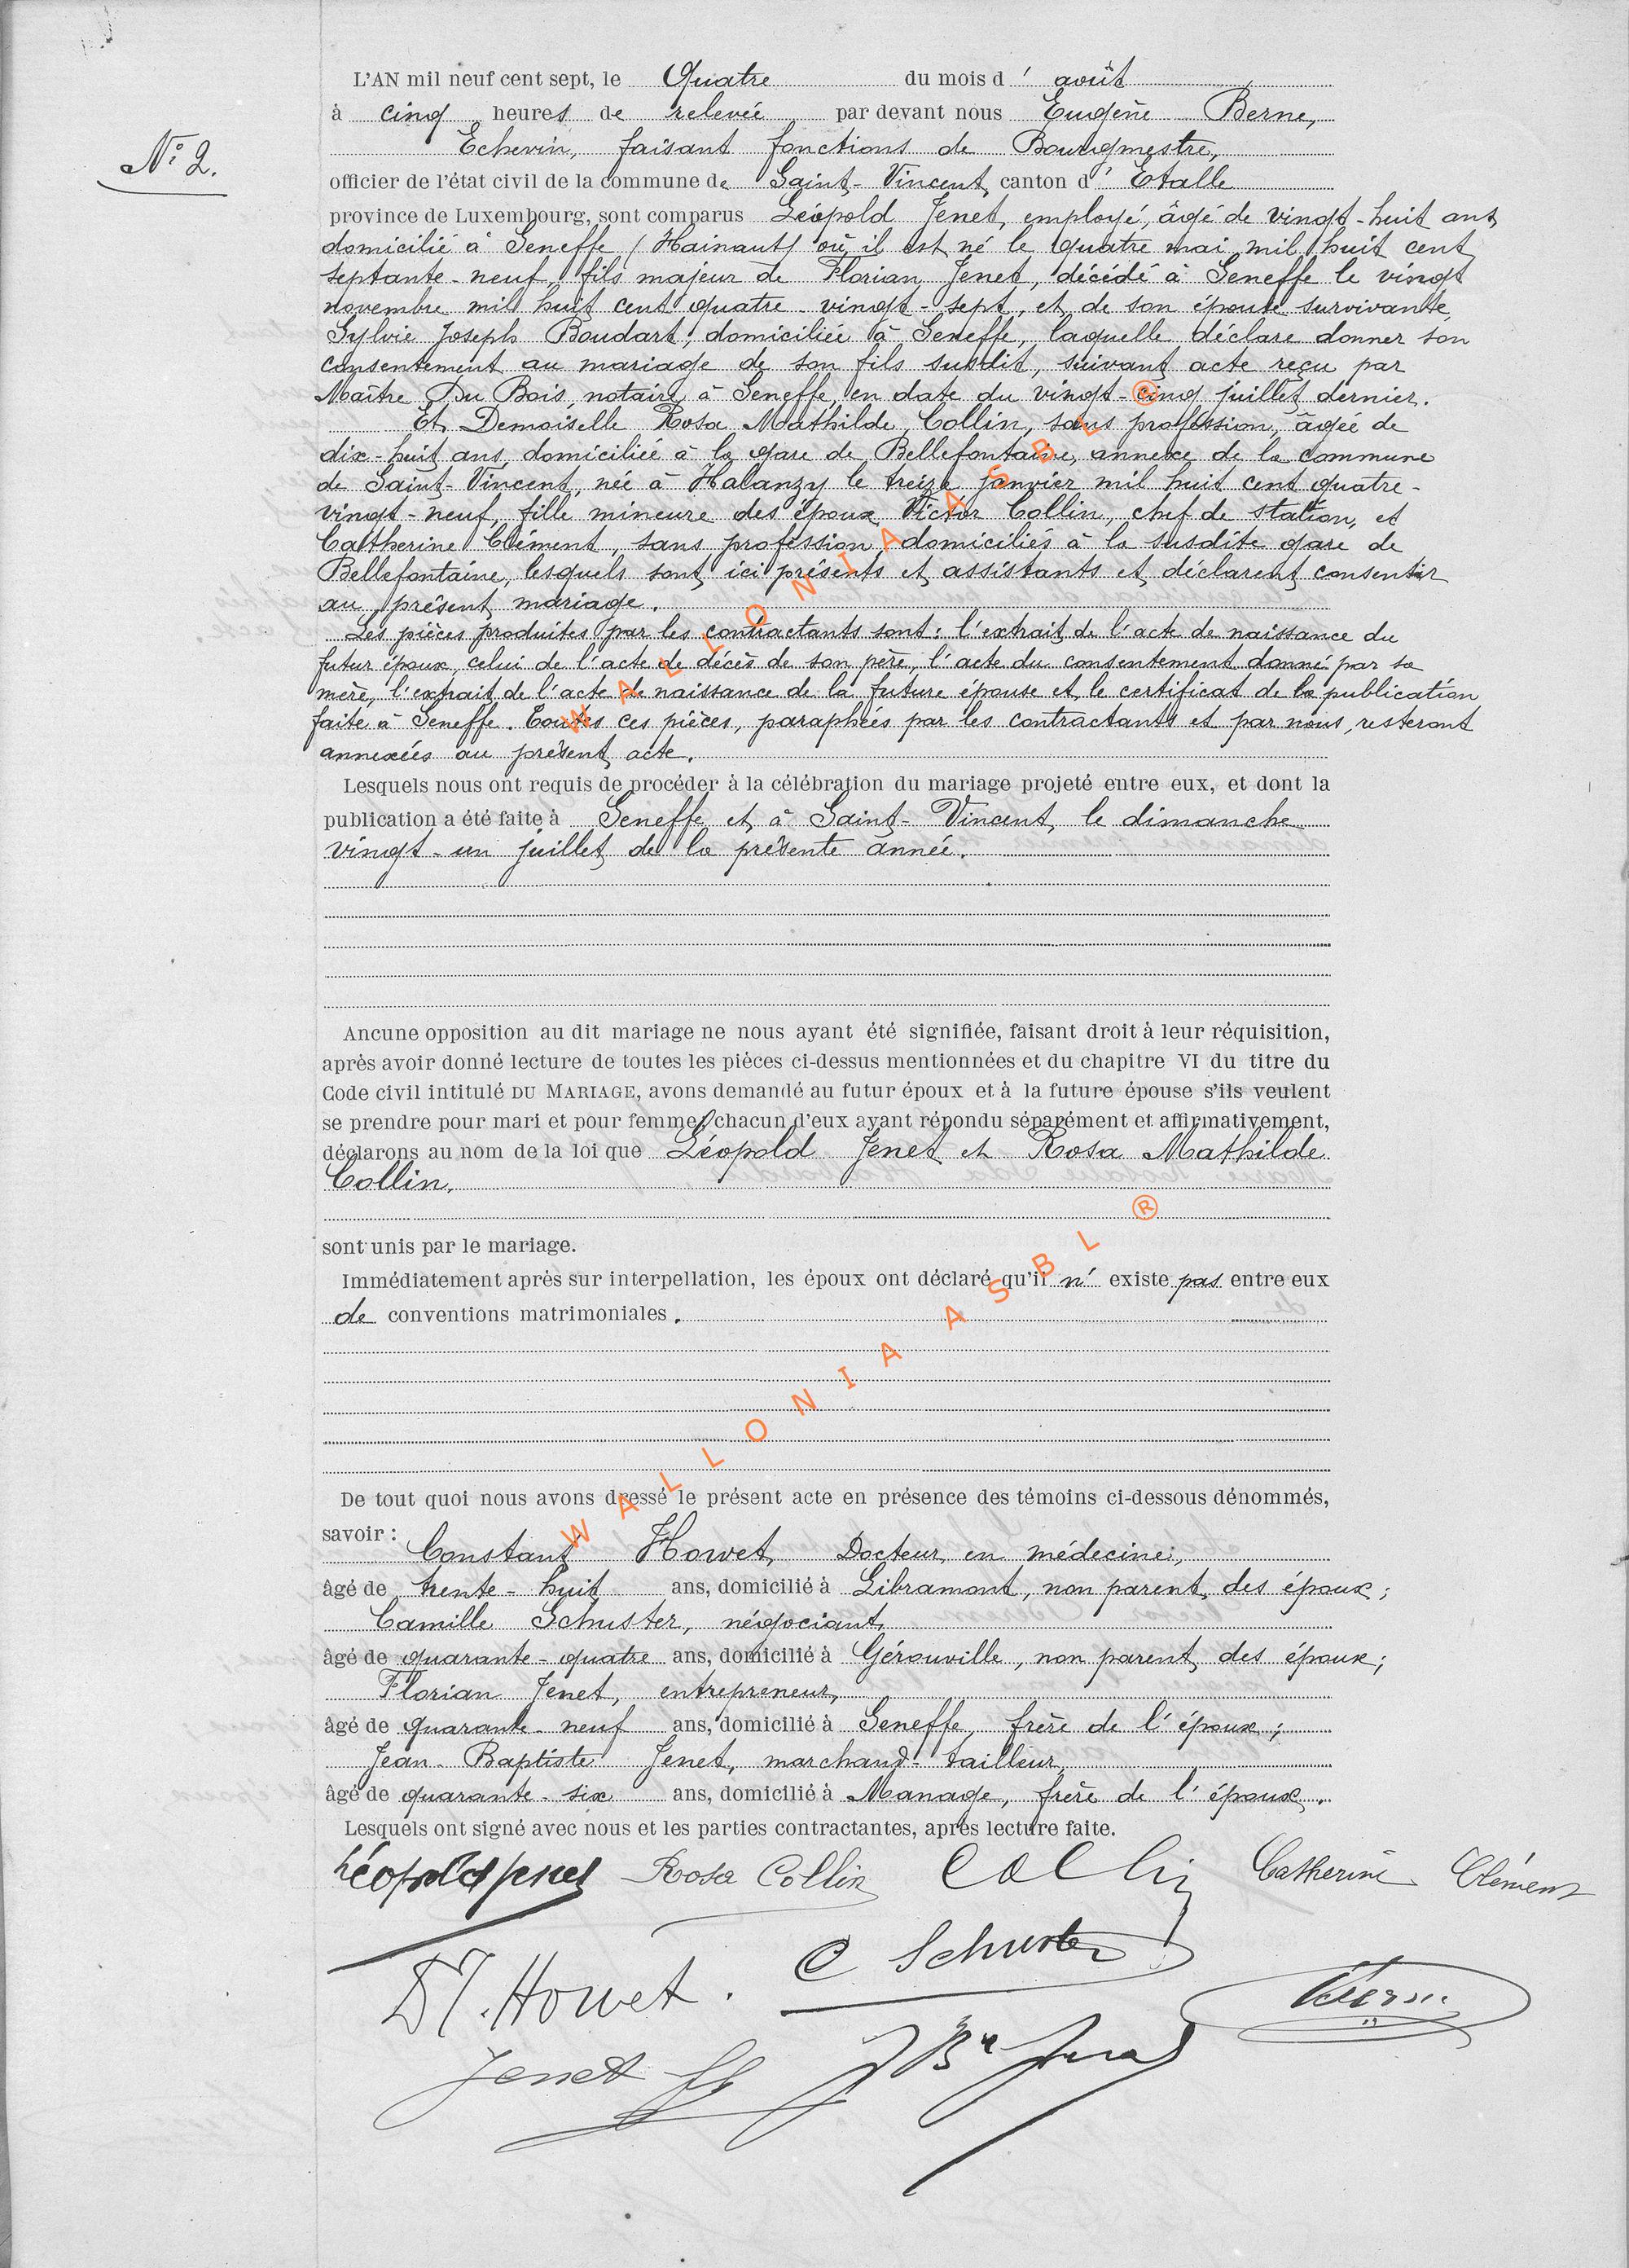 N° 2.
L'AN mil neuf cent sept, le Quatre du mois d' août
à cinq heures de relevée par devant nous Eugène Berne,
Echevin, faisant fonctions de Bourgmestre,
officier de l'état civil de la commune de Saint-Vincent, canton d' Etalle
province de Luxembourg, sont comparus Léopold Jenet, employé, âgé de vingt-huit ans,
domicilié à Seneffe (Hainaut) où il est né le quatre mai mil huit cent
septante-neuf, fils majeur de Florian Jenet, décédé à Seneffe le vingt
novembre mil huit cent quatre-vingt-sept, et de son épouse survivante,
Sylvie Joseph Boudart, domiciliée à Seneffe, laquelle déclare donner son
consentement au mariage de son fils susdit, suivant acte reçu par
Maître Du Bois, notaire à Seneffe, en date du vingt-cinq juillet dernier.
Et Demoiselle Rosa Mathilde Collin, sans profession, âgée de
dix-huit ans, domiciliée à la gare de Bellefontaine, annexe de la commune
de Saint-Vincent, née à Halanzy le treize janvier mil huit cent quatre-
vingt-neuf, fille mineure des époux Victor Collin, chef de station, et
Catherine Clément, sans profession, domiciliés à la susdite gare de
Bellefontaine, lesquels sont ici présents et assistants et déclarent consentir
au présent mariage.
Les pièces produites par les contractants sont: l'extrait de l'acte de naissance du
futur époux, celui de l'acte de décès de son père, l'acte du consentement donné par sa
mère, l'extrait de l'acte de naissance de la future épouse et le certificat de la publication
faite à Seneffe. Toutes ces pièces, paraphées par les contractants et par nous, resteront
annexées au présent acte.
Lesquels nous ont requis de procéder à la célébration du mariage projeté entre eux, et dont la
publication a été faite à Seneffe et à Saint-Vincent, le dimanche
vingt-un juillet de la présente année.
Ancune opposition au dit mariage ne nous ayant été signifiée, faisant droit à leur réquisition,
après avoir donné lecture de toutes les pièces ci-dessus mentionnées et du chapitre VI du titre du
Code civil intitulé DU MARIAGE, avons demandé au futur époux et à la future épouse s'ils veulent
se prendre pour mari et pour femme, chacun d'eux ayant répondu séparément et affirmativement,
déclarons au nom de la loi que Léopold Jenet et Rosa Mathilde
Collin,
sont unis par le mariage.
Immédiatement après sur interpellation, les époux ont déclaré qu'il n' existe pas entre eux
de conventions matrimoniales.
De tout quoi nous avons dressé le présent acte en présence des témoins ci-dessous dénommés,
savoir :
Constant Howet, Docteur en médecine,
âgé de trente-huit ans, domicilié à Libramont, non parent des époux;
Camille Schuster, négociant,
âgé de quarante-quatre ans, domicilié à Gérouville, non parent des époux;
Florian Jenet, entrepreneur,
âgé de quarante-neuf ans, domicilié à Seneffe, frère de l'époux;
Jean-Baptiste Jenet, marchand-tailleur,
âgé de quarante-six ans, domicilié à Manage, frère de l'époux.
Lesquels ont signé avec nous et les parties contractantes, après lecture faite.
Léopold Jenet Rosa Collin Collin Catherine Clément
Dr. Howet. C Schuster
EBerne
Jenet JBte Jenet
WALLONIA ASBL ®
WALLONIA ASBL ®